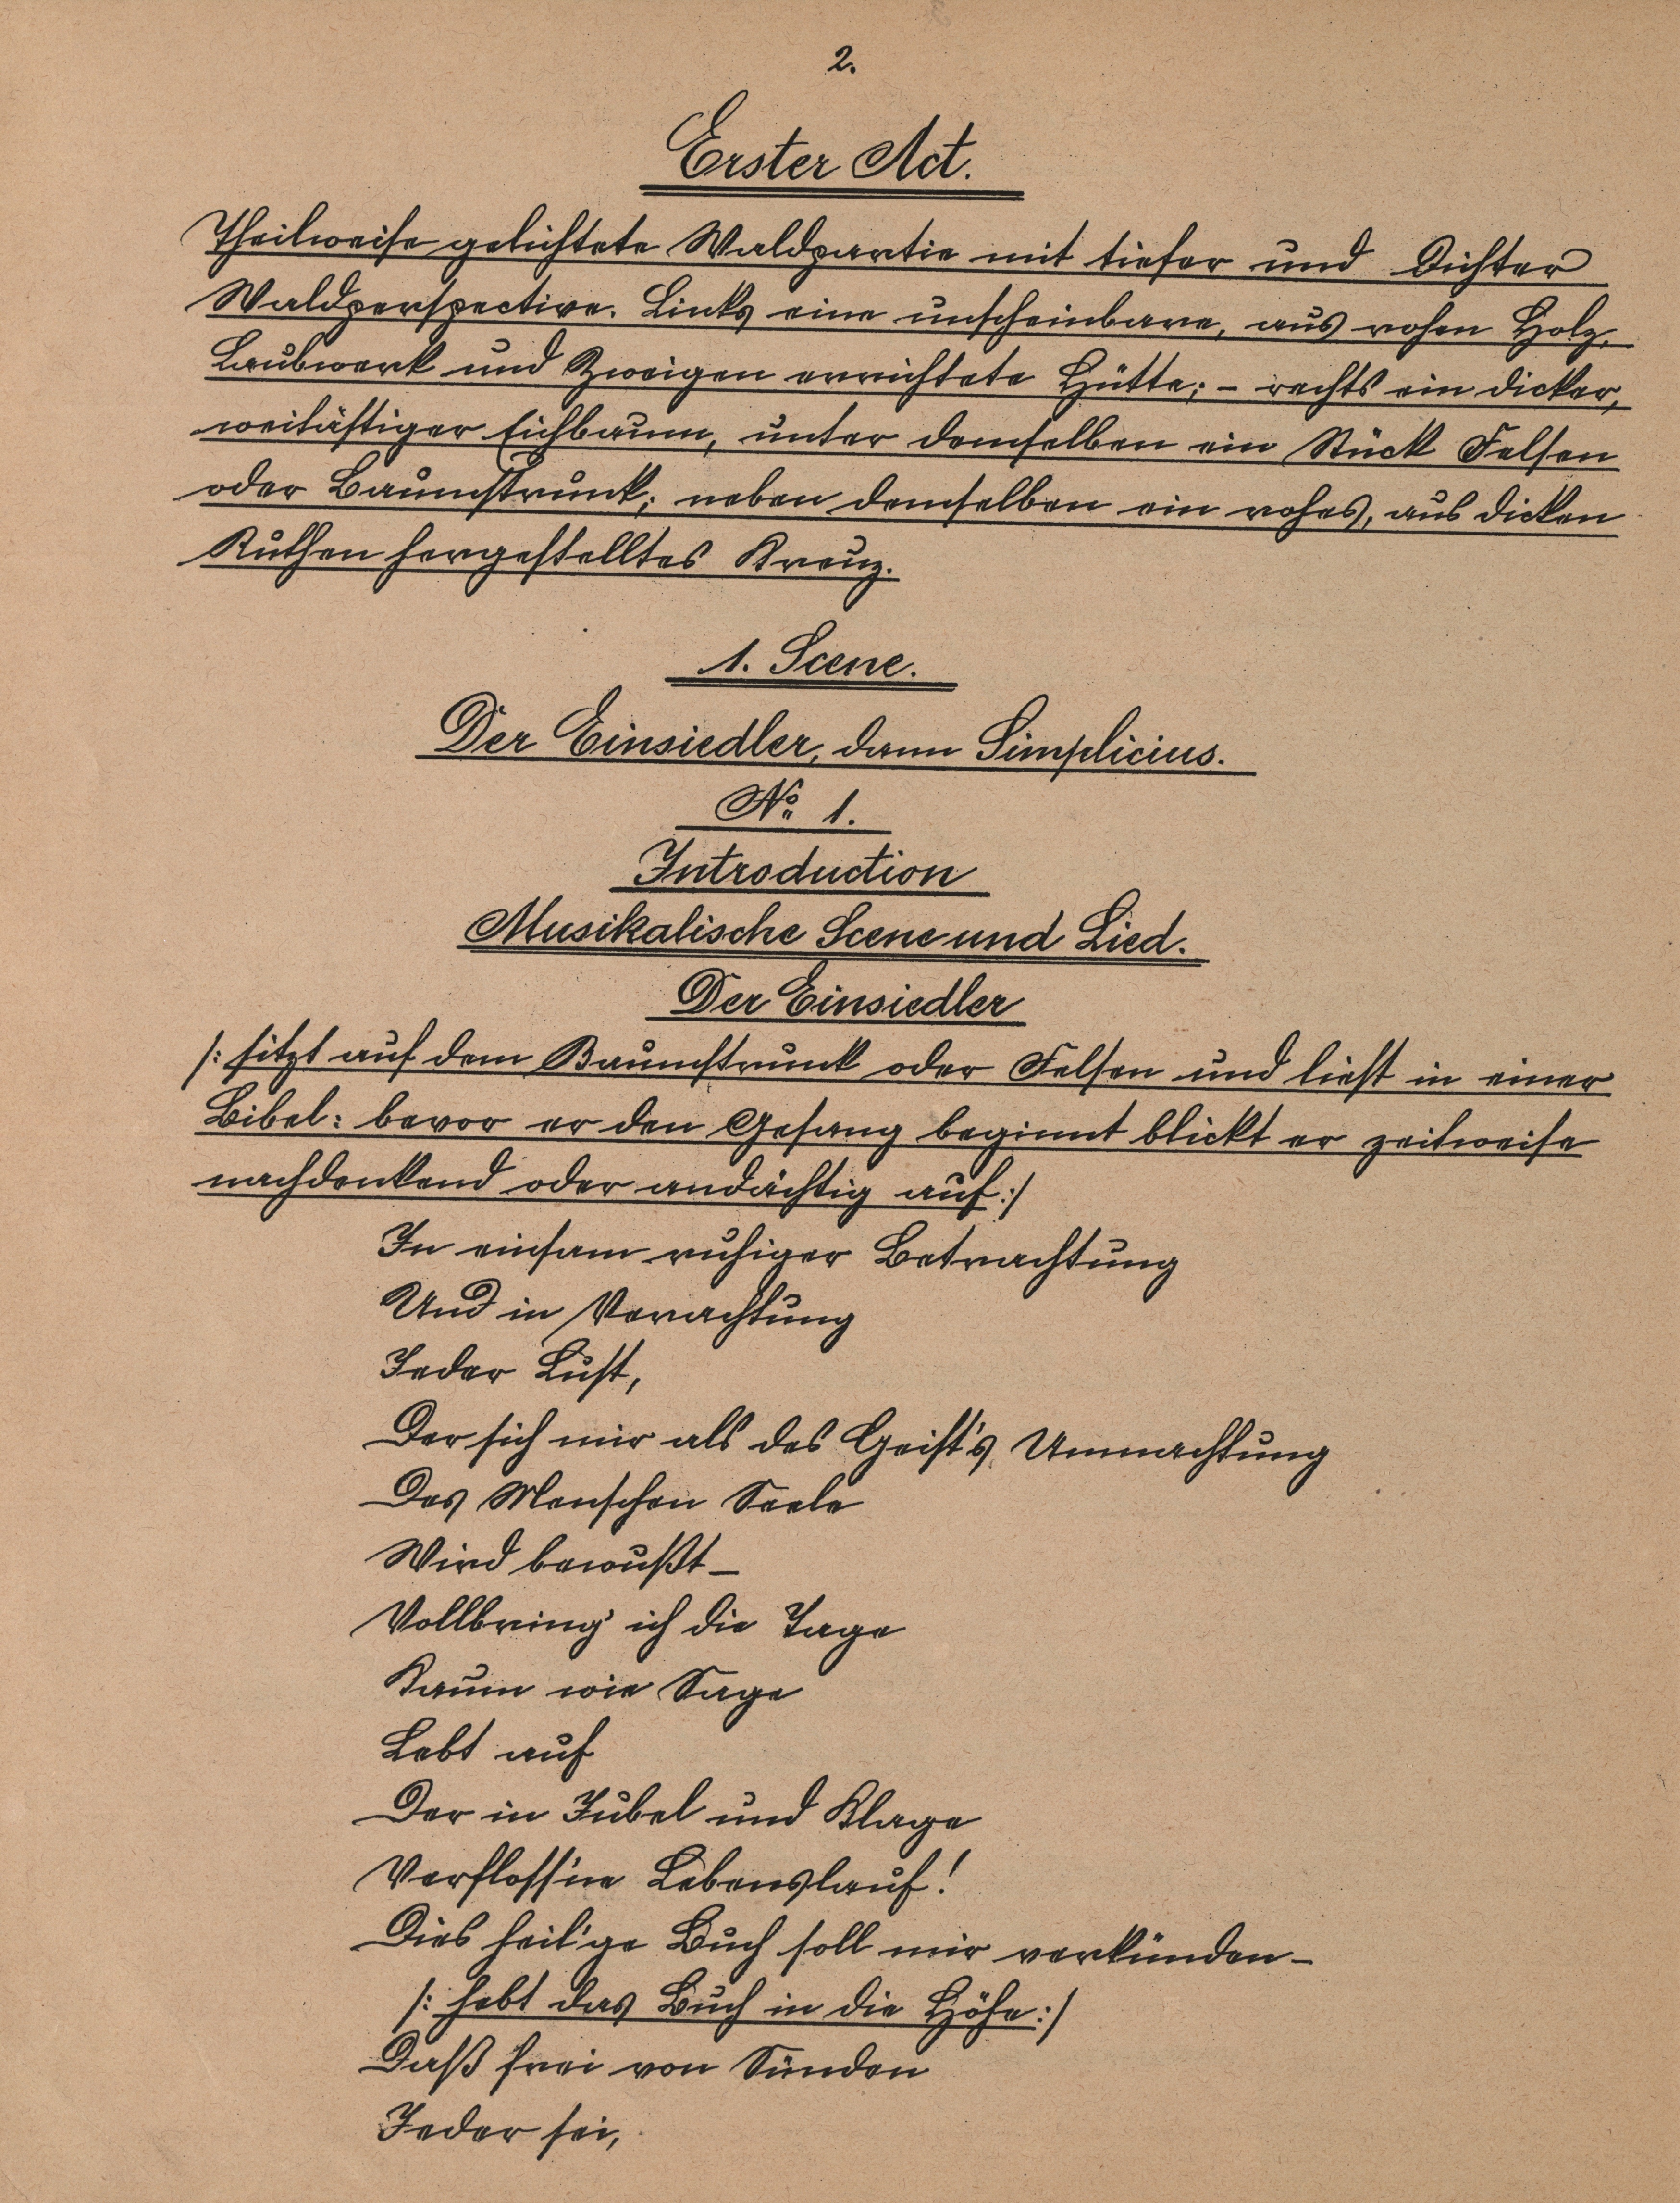 2.
Erster Act.
Theilweise gelichtete Waldpartie mit tiefer und Dichter
Waldperspective. Links eine unscheinbare, aus rohen Holz,
Laubwerk und Zweigen errichtete Hütte; – rechts ein dicker,
weitästiger Eichbaum, unter demselben ein Stück Felsen
oder Baumstrunk; neben demselben ein rohes, aus dicken
Ruthen hergestelltes Kreuz.
1. Scene.
Der Einsiedler, dann Simplicius.
No 1.
Introduction
Musikalische Scene und Lied.
Der Einsiedler
/: sitzt auf dem Baumstrunk oder Felsen und liest in einer
Bibel: bevor er den Gesang beginnt blickt er zeitweise
nachdenkend oder andächtig auf:/
In einsam ruhiger Betrachtung
Und in Verachtung
Jeder Lust,
Der sich mir als des Geist's Umnachtung
Des Menschen Seele
Wird bewußt –
Vollbring' ich die Tage
Kaum wie Sage
Lebt auf
Der in Jubel und Klage
Verfloss'ne Lebenslauf!
Dies heil'ge Buch soll mir verkünden –
/: hebt das Buch in die Höhe:/
Daß frei von Sünden
Jeder sei,